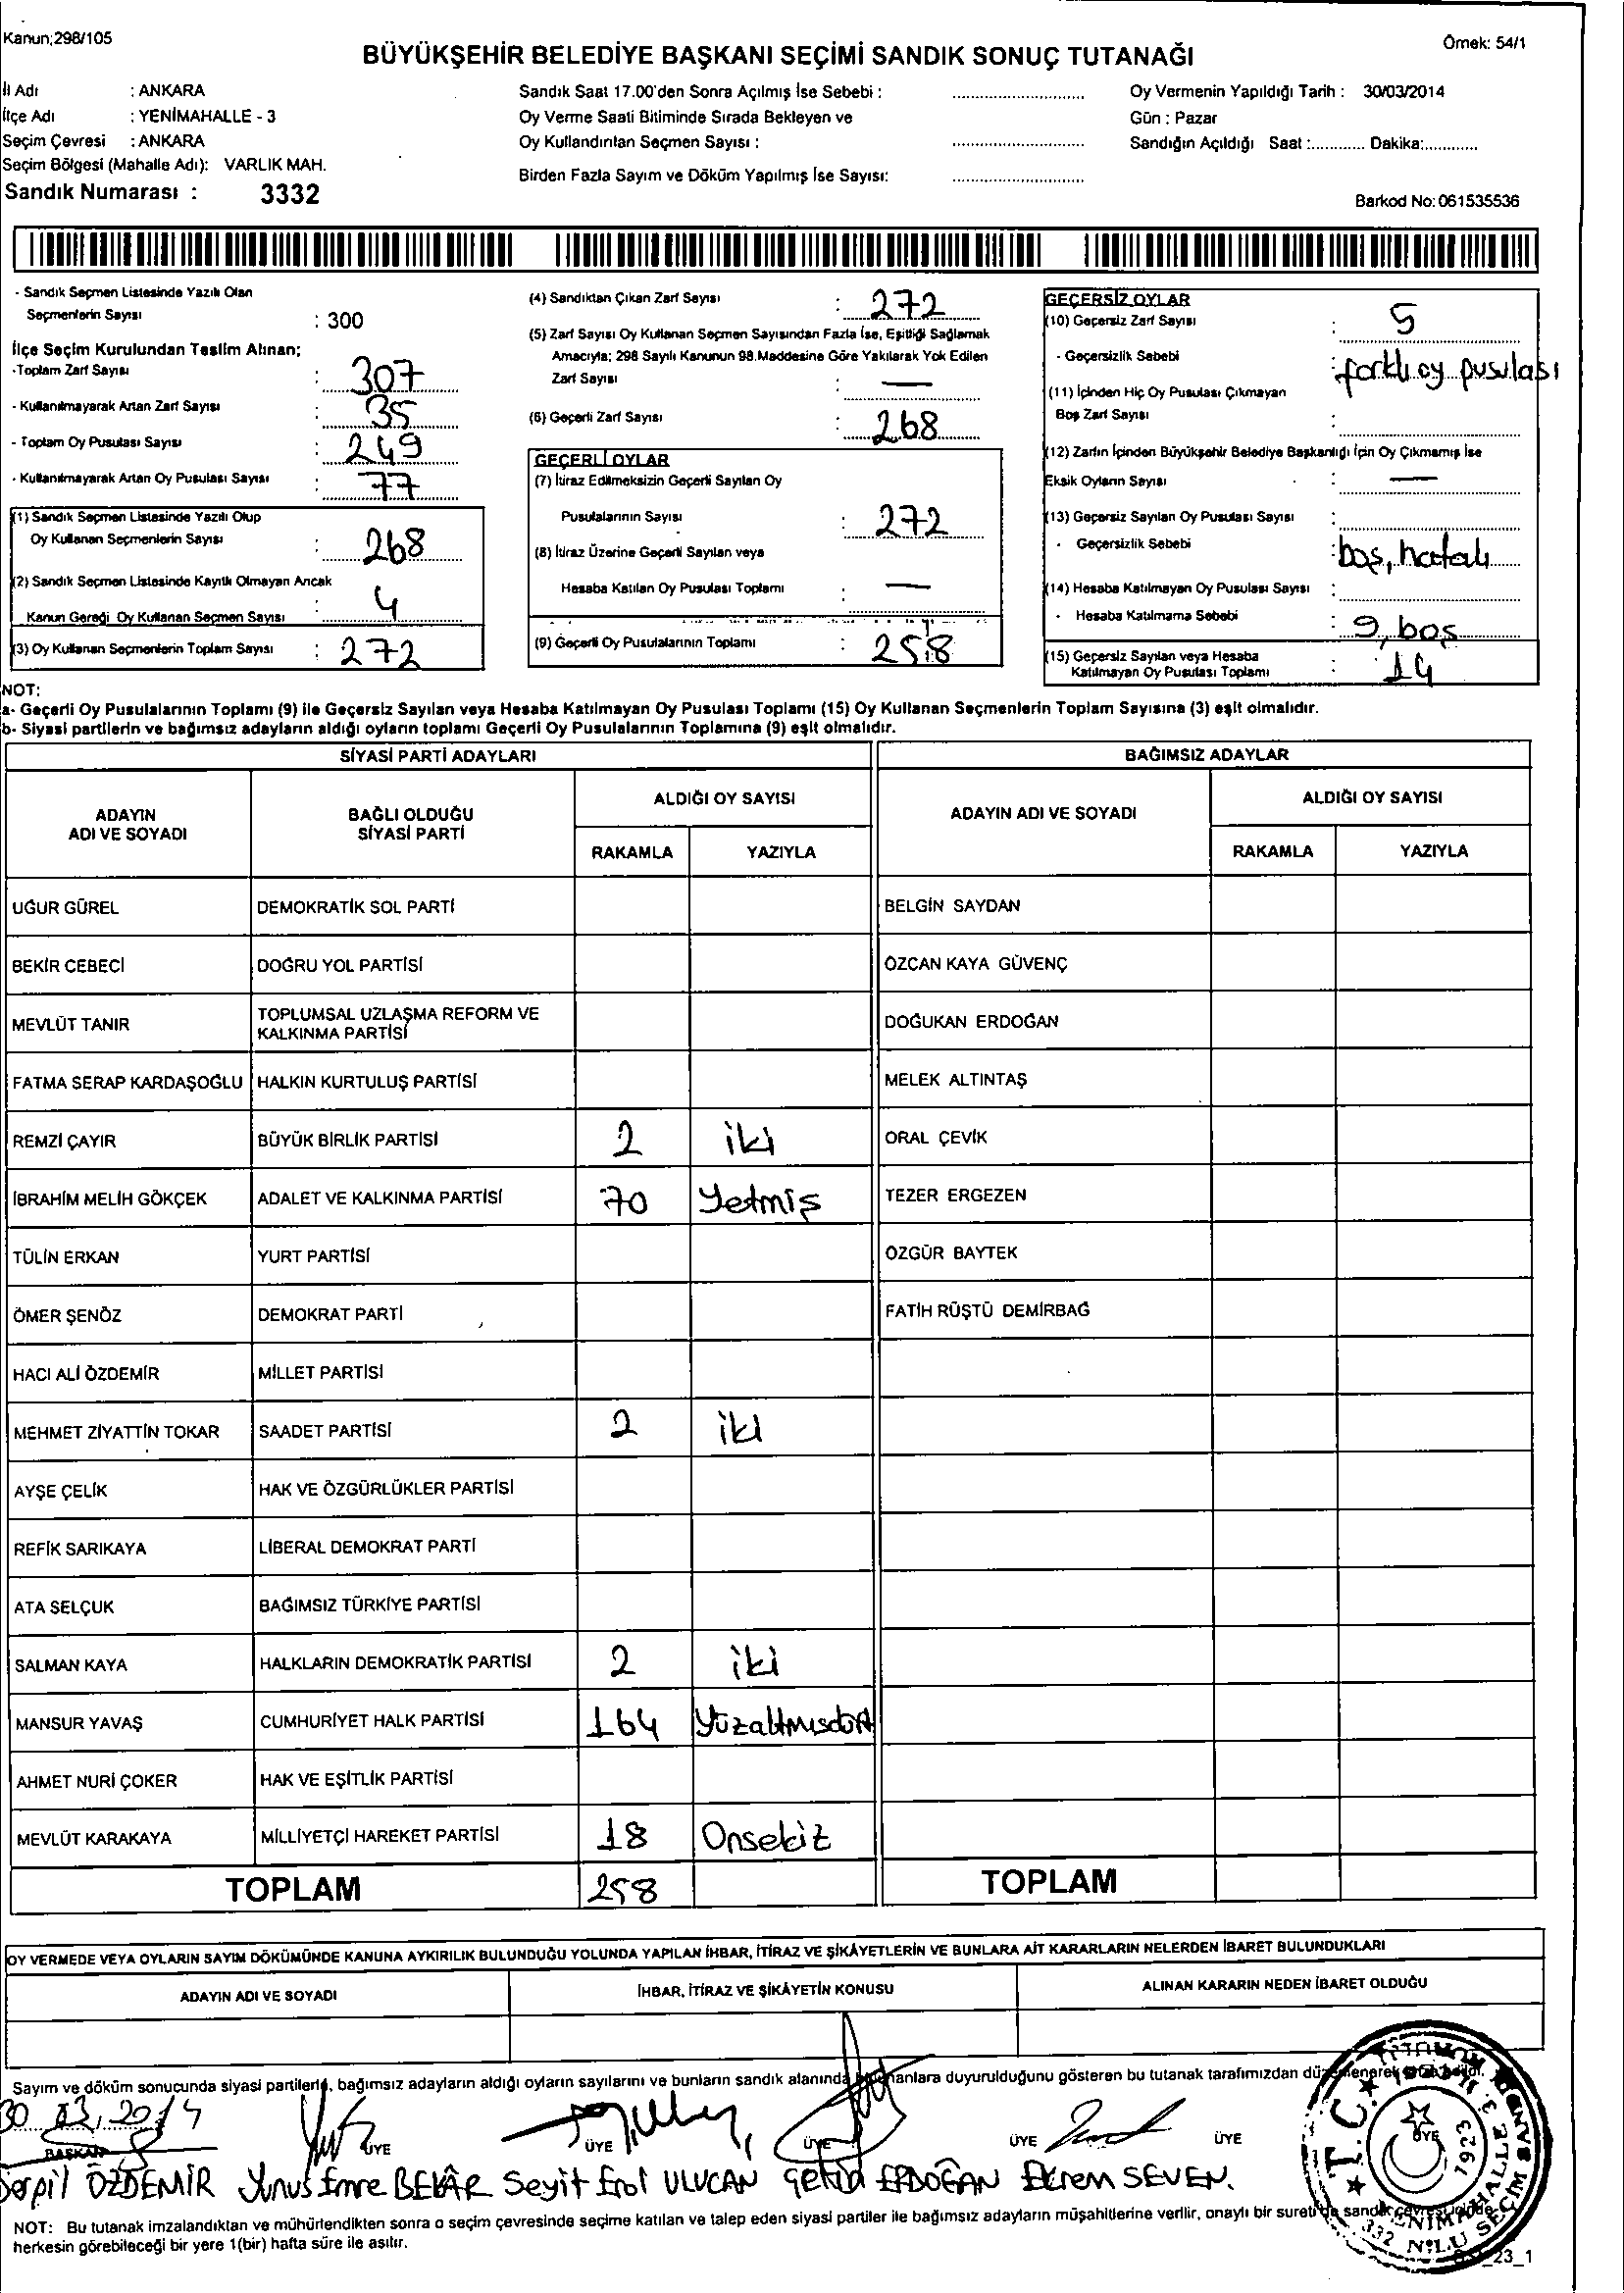 Kanun;298/105
Örnek: 54/1
BÜYÜKŞEHİR BELEDİYE BAŞKANI SEÇİMİ SANDIK SONUÇ TUTANAĞI
İl Adı : ANKARA
İlçe Adı : YENİMAHALLE - 3
Seçim Çevresi : ANKARA
Seçim Bölgesi (Mahalle Adı): VARLIK MAH.
Sandık Numarası : 3332
Sandık Saat 17.00'den Sonra Açılmış İse Sebebi :
Oy Verme Saati Bitiminde Sırada Bekleyen ve
Oy Kullandırılan Seçmen Sayısı :
Birden Fazla Sayım ve Döküm Yapılmış İse Sayısı:
Oy Vermenin Yapıldığı Tarih : 30/03/2014
Gün : Pazar
Sandığın Açıldığı Saat :............ Dakika:............
Barkod No: 061535536
- Sandık Seçmen Listesinde Yazılı Olan
Seçmenlerin Sayısı : 300
İlçe Seçim Kurulundan Teslim Alınan;
-Toplam Zarf Sayısı : 307
- Kullanılmayarak Artan Zarf Sayısı : 35
- Toplam Oy Pusulası Sayısı : 249
- Kullanılmayarak Artan Oy Pusulası Sayısı : 77
(1) Sandık Seçmen Listesinde Yazılı Olup
Oy Kullanan Seçmenlerin Sayısı : 268
(2) Sandık Seçmen Listesinde Kayıtlı Olmayan Ancak
Kanun Gereği Oy Kullanan Seçmen Sayısı : 4
(3) Oy Kullanan Seçmenlerin Toplam Sayısı : 272
(4) Sandıktan Çıkan Zarf Sayısı : 272
(5) Zarf Sayısı Oy Kullanan Seçmen Sayısından Fazla İse, Eşitliği Sağlamak
Amacıyla; 298 Sayılı Kanunun 98.Maddesine Göre Yakılarak Yok Edilen
Zarf Sayısı : —
(6) Geçerli Zarf Sayısı : 268
GEÇERLİ OYLAR
(7) İtiraz Edilmeksizin Geçerli Sayılan Oy
Pusulalarının Sayısı : 272
(8) İtiraz Üzerine Geçerli Sayılan veya
Hesaba Katılan Oy Pusulası Toplamı : —
(9) Geçerli Oy Pusulalarının Toplamı : 258
GEÇERSİZ OYLAR
(10) Geçersiz Zarf Sayısı : 5
- Geçersizlik Sebebi : farklı oy pusulası
(11) İçinden Hiç Oy Pusulası Çıkmayan
Boş Zarf Sayısı :
(12) Zarfın İçinden Büyükşehir Belediye Başkanlığı İçin Oy Çıkmamış İse
Eksik Oyların Sayısı : —
(13) Geçersiz Sayılan Oy Pusulası Sayısı :
- Geçersizlik Sebebi : boş, hatalı
(14) Hesaba Katılmayan Oy Pusulası Sayısı :
- Hesaba Katılmama Sebebi : 9, boş
(15) Geçersiz Sayılan veya Hesaba
Katılmayan Oy Pusulası Toplamı : 14
NOT:
a- Geçerli Oy Pusulalarının Toplamı (9) ile Geçersiz Sayılan veya Hesaba Katılmayan Oy Pusulası Toplamı (15) Oy Kullanan Seçmenlerin Toplam Sayısına (3) eşit olmalıdır.
b- Siyasi partilerin ve bağımsız adayların aldığı oyların toplamı Geçerli Oy Pusulalarının Toplamına (9) eşit olmalıdır.
SİYASİ PARTİ ADAYLARI
BAĞIMSIZ ADAYLAR
ADAYIN ADI VE SOYADI
BAĞLI OLDUĞU SİYASİ PARTİ
ALDIĞI OY SAYISI
RAKAMLA YAZIYLA
ADAYIN ADI VE SOYADI
ALDIĞI OY SAYISI
RAKAMLA YAZIYLA
UĞUR GÜREL DEMOKRATİK SOL PARTİ BELGİN SAYDAN
BEKİR CEBECİ DOĞRU YOL PARTİSİ ÖZCAN KAYA GÜVENÇ
MEVLÜT TANIR TOPLUMSAL UZLAŞMA REFORM VE KALKINMA PARTİSİ DOĞUKAN ERDOĞAN
FATMA SERAP KARDAŞOĞLU HALKIN KURTULUŞ PARTİSİ MELEK ALTINTAŞ
REMZİ ÇAYIR BÜYÜK BİRLİK PARTİSİ 2 iki ORAL ÇEVİK
İBRAHİM MELİH GÖKÇEK ADALET VE KALKINMA PARTİSİ 70 Yetmiş TEZER ERGEZEN
TÜLİN ERKAN YURT PARTİSİ ÖZGÜR BAYTEK
ÖMER ŞENÖZ DEMOKRAT PARTİ FATİH RÜŞTÜ DEMİRBAĞ
HACI ALİ ÖZDEMİR MİLLET PARTİSİ
MEHMET ZİYATTİN TOKAR SAADET PARTİSİ 2 iki
AYŞE ÇELİK HAK VE ÖZGÜRLÜKLER PARTİSİ
REFİK SARIKAYA LİBERAL DEMOKRAT PARTİ
ATA SELÇUK BAĞIMSIZ TÜRKİYE PARTİSİ
SALMAN KAYA HALKLARIN DEMOKRATİK PARTİSİ 2 iki
MANSUR YAVAŞ CUMHURİYET HALK PARTİSİ 164 Yüzaltmışdört
AHMET NURİ ÇOKER HAK VE EŞİTLİK PARTİSİ
MEVLÜT KARAKAYA MİLLİYETÇİ HAREKET PARTİSİ 18 Onsekiz
TOPLAM 258 TOPLAM
OY VERMEDE VEYA OYLARIN SAYIM DÖKÜMÜNDE KANUNA AYKIRILIK BULUNDUĞU YOLUNDA YAPILAN İHBAR, İTİRAZ VE ŞİKÂYETLERİN VE BUNLARA AİT KARARLARIN NELERDEN İBARET BULUNDUKLARI
ADAYIN ADI VE SOYADI İHBAR, İTİRAZ VE ŞİKÂYETİN KONUSU ALINAN KARARIN NEDEN İBARET OLDUĞU
Sayım ve döküm sonucunda siyasi partilerin, bağımsız adayların aldığı oyların sayılarını ve bunların sandık alanında duyurulduğunu gösteren bu tutanak tarafımızdan
30.03.2014
BAŞKAN ÜYE ÜYE ÜYE ÜYE ÜYE ÜYE
Serpil ÖZDEMİR Yunus Emre BEKÂR Seyit Erol ULUCAN Çetin ERDOĞAN Ekrem SEVEN.
T.C. 1923
NOT: Bu tutanak imzalandıktan ve mühürlendikten sonra o seçim çevresinde seçime katılan ve talep eden siyasi partiler ile bağımsız adayların müşahitlerine verilir, onaylı bir sureti de sandık çevresi içinde
herkesin görebileceği bir yere 1(bir) hafta süre ile asılır.